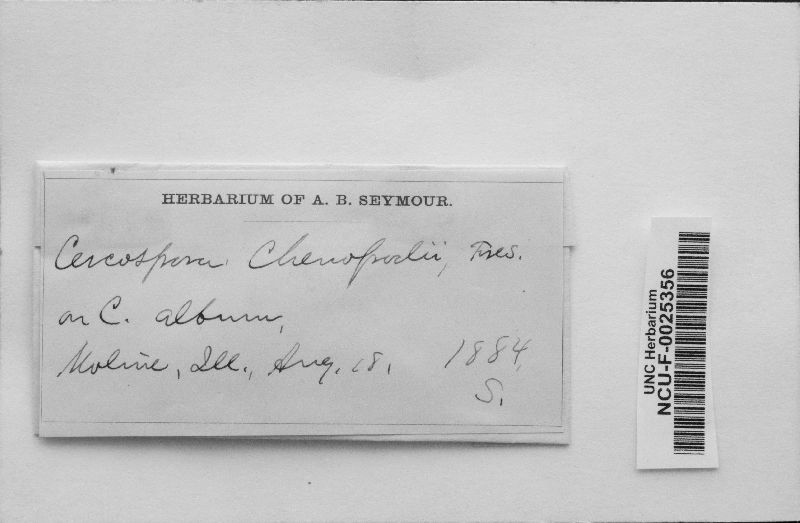 HERBARIUM OF A. B. SEYMOUR.
Cercospora Chenopodii, Fres.
on C. album,
Moline, Ill., Aug. 18, 1884,
S.
UNC Herbarium
NCU-F-0025356